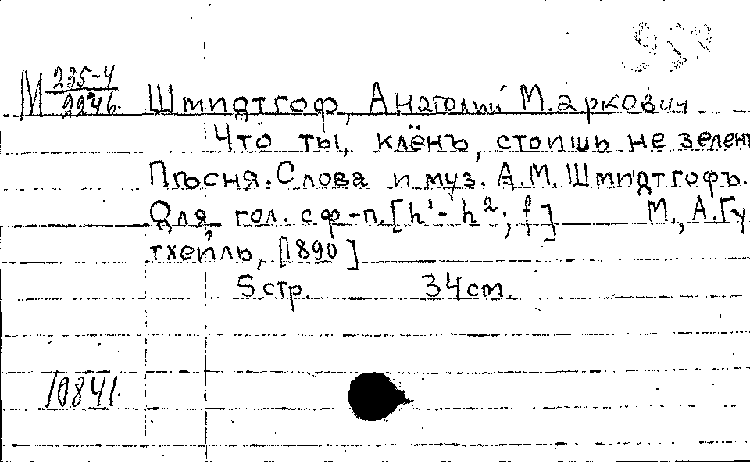 М 235-4
2246.
Шмидтгоф, Анатолий Маркович
Что ты, клёнъ, стоишь не зелен
Пѣсня. Слова и муз. А.М. Шмидтгофъ.
Для гол. с ф-п. [h¹- h²; f] М., А. Гу
тхейль, [1890]
5 стр. 34 cm.
10841.